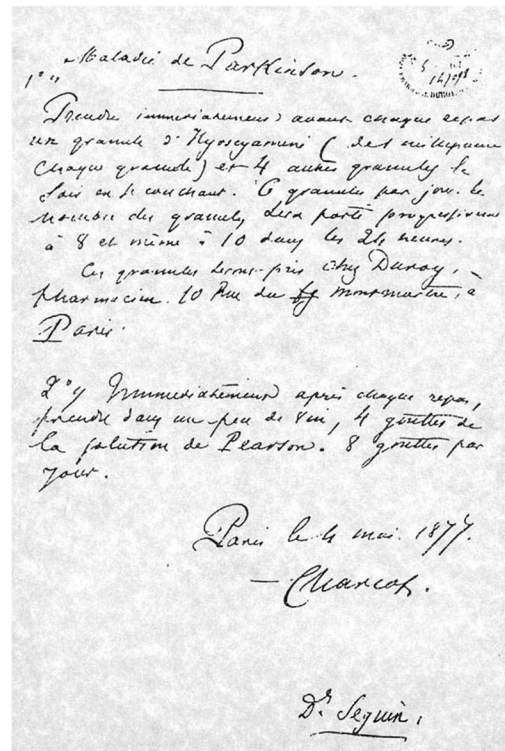 Maladie de Parkinson.
1°
Prendre immédiatement avant chaque repas
un granule d'Hyoscyamine ( milligramme
chaque granule) et 4 autres granules le
soir en se couchant. 6 granules par jour. Le
nombre des granules sera porté progressivement
à 8 et même à 10 dans les 24 heures.
Ces granules seront pris chez Duroy,
pharmacien. 10 Rue du fg montmartre, à
Paris.
2° Immédiatement après chaque repas,
prendre dans un peu de vin, 4 gouttes de
la solution de Pearson. 8 gouttes par
jour.
Paris le 4 mai. 1877.
Charcot.
Dr Seguin.